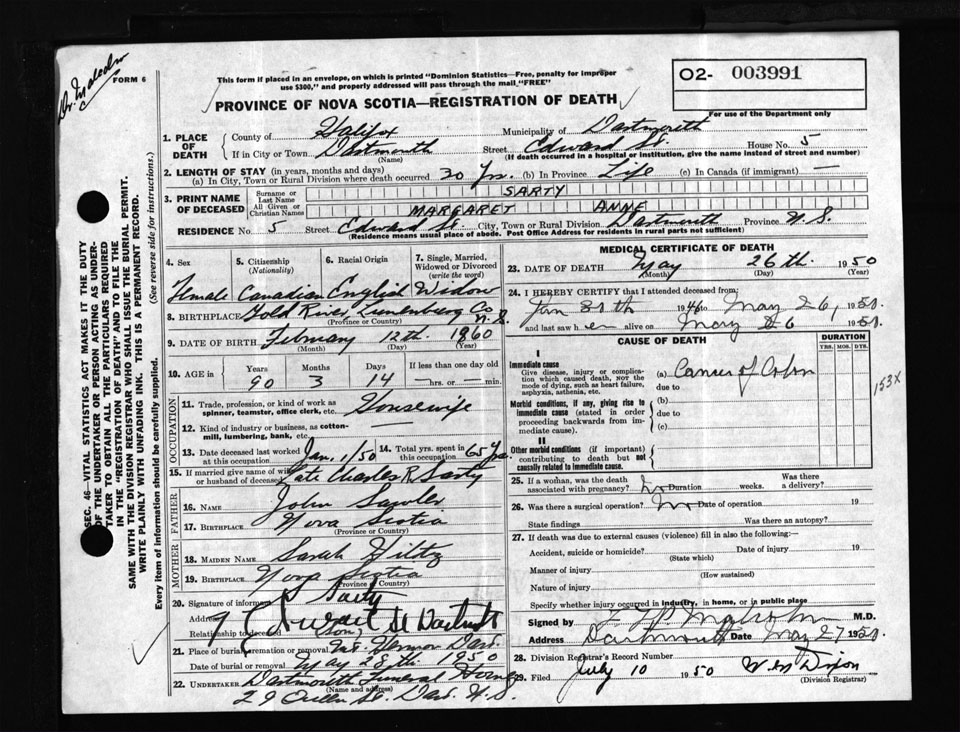 FORM 6
This form if placed in an envelope, on which is printed "Dominion Statistics—Free, penalty for improper
use $300," and properly addressed will pass through the mail "FREE"
O2- 003991
For use of the Department only
PROVINCE OF NOVA SCOTIA—REGISTRATION OF DEATH
1. PLACE OF DEATH County of Halifax Municipality of Dartmouth
If in City or Town Dartmouth (Name) Street Edward St. House No. 5
(If death occurred in a hospital or institution, give the name instead of street and number)
2. LENGTH OF STAY (in years, months and days)
(a) In City, Town or Rural Division where death occurred 30 yrs. (b) In Province Life (c) In Canada (if immigrant) —
3. PRINT NAME OF DECEASED Surname or Last Name SARTY
All Given or Christian Names MARGARET ANNE
RESIDENCE No. 5 Street Edward St City, Town or Rural Division Dartmouth Province N.S.
(Residence means usual place of abode. Post Office Address for residents in rural parts not sufficient)
4. Sex 5. Citizenship (Nationality) 6. Racial Origin 7. Single, Married, Widowed or Divorced (write the word)
Female Canadian English Widow
8. BIRTHPLACE Gold River, Lunenburg Co N.S.
(Province or Country)
9. DATE OF BIRTH February 12th. 1860
(Month) (Day) (Year)
10. AGE in Years Months Days If less than one day old
90 3 14 —hrs. or —min.
OCCUPATION
11. Trade, profession, or kind of work as spinner, teamster, office clerk, etc. Housewife
12. Kind of industry or business, as cotton-mill, lumbering, bank, etc. —
13. Date deceased last worked at this occupation Jan. 1/50 14. Total yrs. spent in this occupation 65 yrs.
15. If married give name of wife or husband of deceased Late Charles R. Sarty
FATHER
16. Name John
17. Birthplace Nova Scotia
(Province or Country)
MOTHER
18. Maiden Name Sarah
19. Birthplace Nova Scotia
(Province or Country)
20. Signature of informant Sarty
Address St Dartmouth
Relationship to deceased (Son)
21. Place of burial, cremation or removal Mt. Hermon Dart.
Date of burial or removal May 28th. 1950
22. UNDERTAKER Dartmouth Funeral Home
(Name and address)
29 Queen St. Dart. N.S.
MEDICAL CERTIFICATE OF DEATH
23. DATE OF DEATH May 26th. 1950
(Month) (Day) (Year)
24. I HEREBY CERTIFY that I attended deceased from:
Jan 1946 May 26, 1950.
and last saw her alive on May 26 1950.
CAUSE OF DEATH
DURATION
YRS. MOS. DYS.
I
Immediate cause
Give disease, injury or complication which caused death, NOT the mode of dying, such as heart failure, asphyxia, asthenia, etc.
(a) Cancer of Colon
due to
153X
Morbid conditions, if any, giving rise to immediate cause (stated in order proceeding backwards from immediate cause).
(b)
due to
(c)
II
Other morbid conditions (if important) contributing to death but not causally related to immediate cause.
25. If a woman, was the death associated with pregnancy? no Duration weeks. Was there a delivery?
26. Was there a surgical operation? no Date of operation 19
State findings Was there an autopsy?
27. If death was due to external causes (violence) fill in also the following:—
Accident, suicide or homicide? Date of injury 19
(State which)
Manner of injury
(How sustained)
Nature of injury
Specify whether injury occurred in industry, in home, or in public place
Signed by M.D.
Address Dartmouth Date May 27 1950.
28. Division Registrar's Record Number
29. Filed July 10 1950 Dixon
(Division Registrar)
SEC. 46—VITAL STATISTICS ACT MAKES IT THE DUTY
OF THE UNDERTAKER OR PERSON ACTING AS UNDER-
TAKER TO OBTAIN ALL THE PARTICULARS REQUIRED
IN THE "REGISTRATION OF DEATH" AND TO FILE THE
SAME WITH THE DIVISION REGISTRAR WHO SHALL ISSUE THE BURIAL PERMIT.
WRITE PLAINLY WITH UNFADING INK. THIS IS A PERMANENT RECORD.
Every item of information should be carefully supplied. (See reverse side for instructions.)